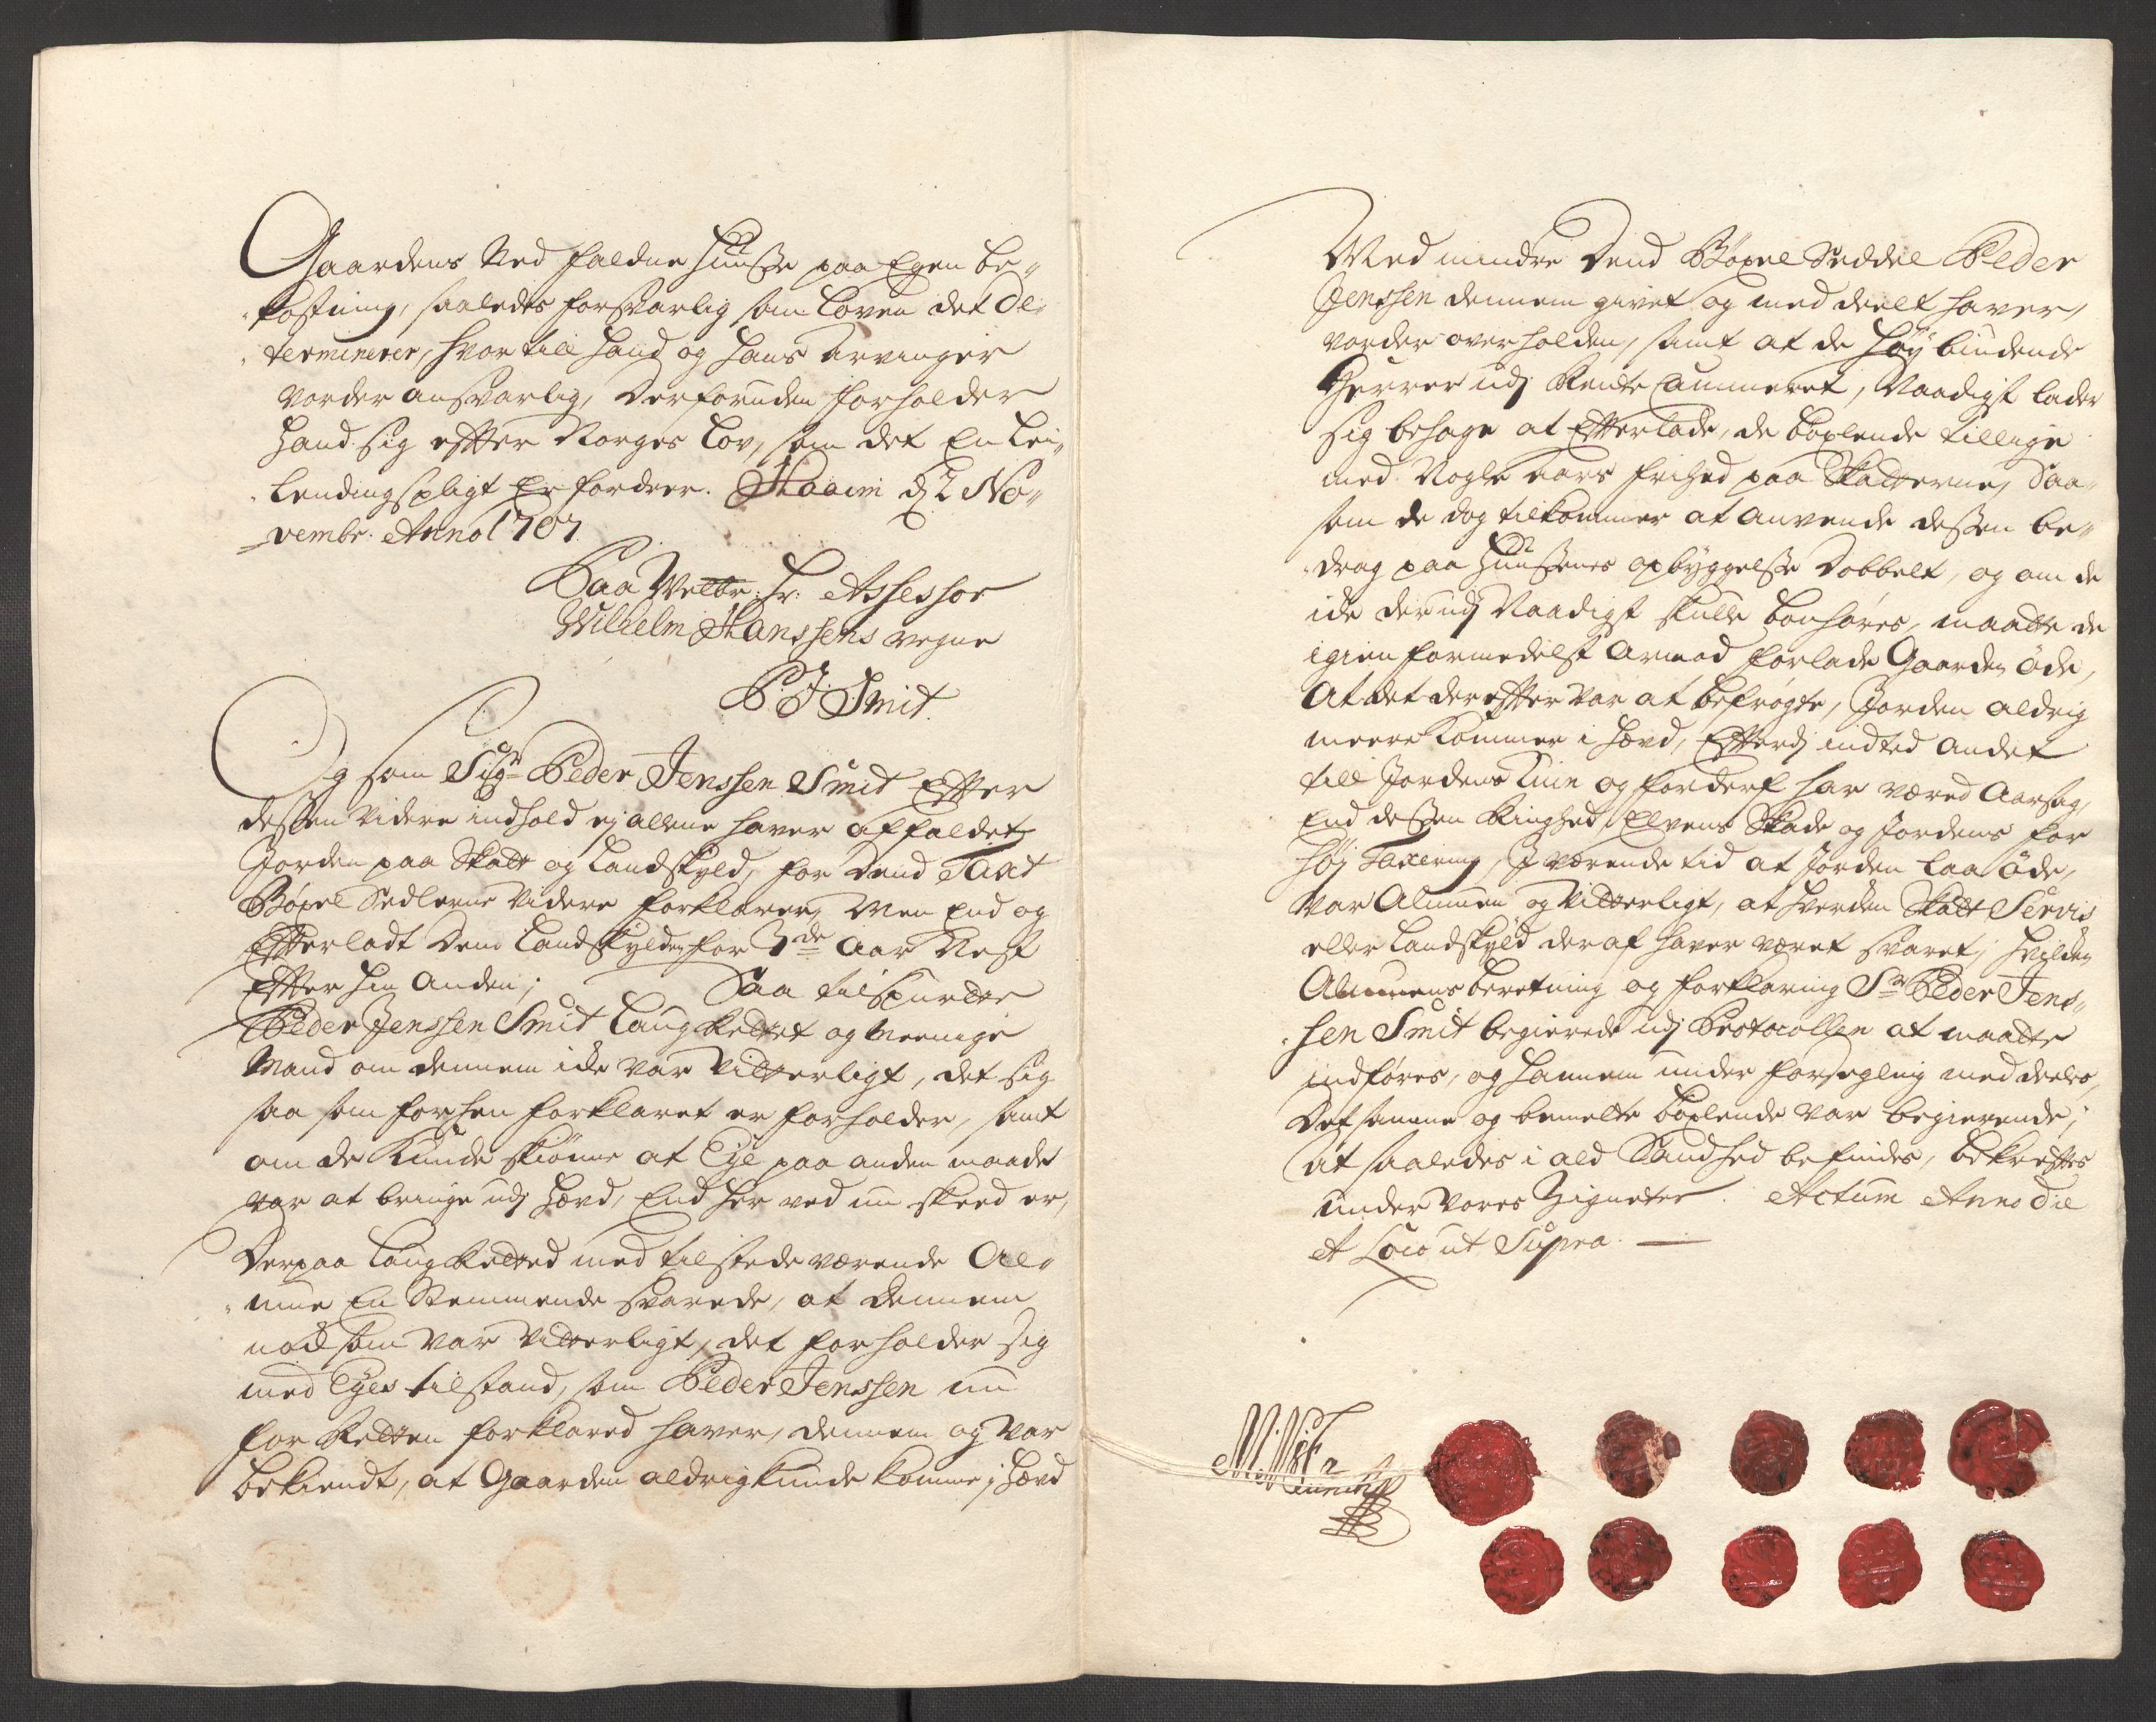 Gaardens Ned faldne Huusse paa Egen be-
kostning, saaledes forsvarlig som Loven det de-
terminerer, hvor till hand og hans Arvinger
vorder ansvarlig, Derforuden forholder
hand sig efter Norges Lov, som det En Lei-
lendings pligt Er fordrer. d: 2 No-
vembr: Anno 1707
Paa Welbr: Hr: Assessor
Wilhelm Hanssens vegne
P: J: Smit.
Og som Sigr Peder Jenssen Smit Efter
dessen videre indhold ej allene haver affældet
Jorden paa Skatt og Landskyld, for dend Taxt
Bøxel Sedlerne videre forklarer, Men End og
Efterladt dem Landskylden for 3de Aar Nest
Efter hin Anden; Saa tilspurdte
Peder Jenssen Smit Laug Rettet og meenige
Mand om dennem icke var vitterligt, det sig
saa som forhen forklaret er forholder, samt
om de kunde skiønne at Eye paa anden maade
var at bringe udj hævd, End her ved nu skeed er,
Derpaa Laug Retted med tilstede værende Al-
mue En Stemmende svarede, at dennem
nock som var vitterligt, det forholder sig
med Eyes tilstand, som Peder Jenssen nu
for Retten forklared haver, dennem og var
bekiendt, at Gaarden aldrig kunde komme j hævd
Med mindre Dend Bøxel Seddel Peder
Jenssen dennem givet og med deelt haver,
vorder over holden, samt at de Høybiudende
Herrer udj Rente Cammeret, Naadigst lader
sig behage at Efterlade, de bøxlende tillige
med Nogle aars frihed paa Skatterne, Saa-
som de dog tilkommer at anvende dessen be-
drag paa Huussenes opbyggelse Dobbelt, og om de
icke derudj Naadigst skulle bønhøres, maatte de
igien formedelst Armod forlade Gaarden øde,
At det derefter var at befrøgte, Jorden aldrig
meere kommer i hævd, Efterdj indted andet
till Jordens Ruin og forderf har været Aarsag,
End dessen Ringhed, Elvens Skade og Jordens for
høj Taxering, J værende tid at Jorden laa øde,
var Almuen og vitterligt, at hverken Skatt Servis
eller Landskyld der af haver været svaret, hvilcken
Almuens beretning og forklaring Sr Peder Jens-
sen Smit begierede udj Protocollen at maatte
indføres, og hannem under forsegling meddeeles,
Det samme og bemelte bøxlende var begierende;
At saaledes i ald Sandhed befindes, bekreftes
under vores Zigneter. Actum Anno Die
et Loco ut Supra.